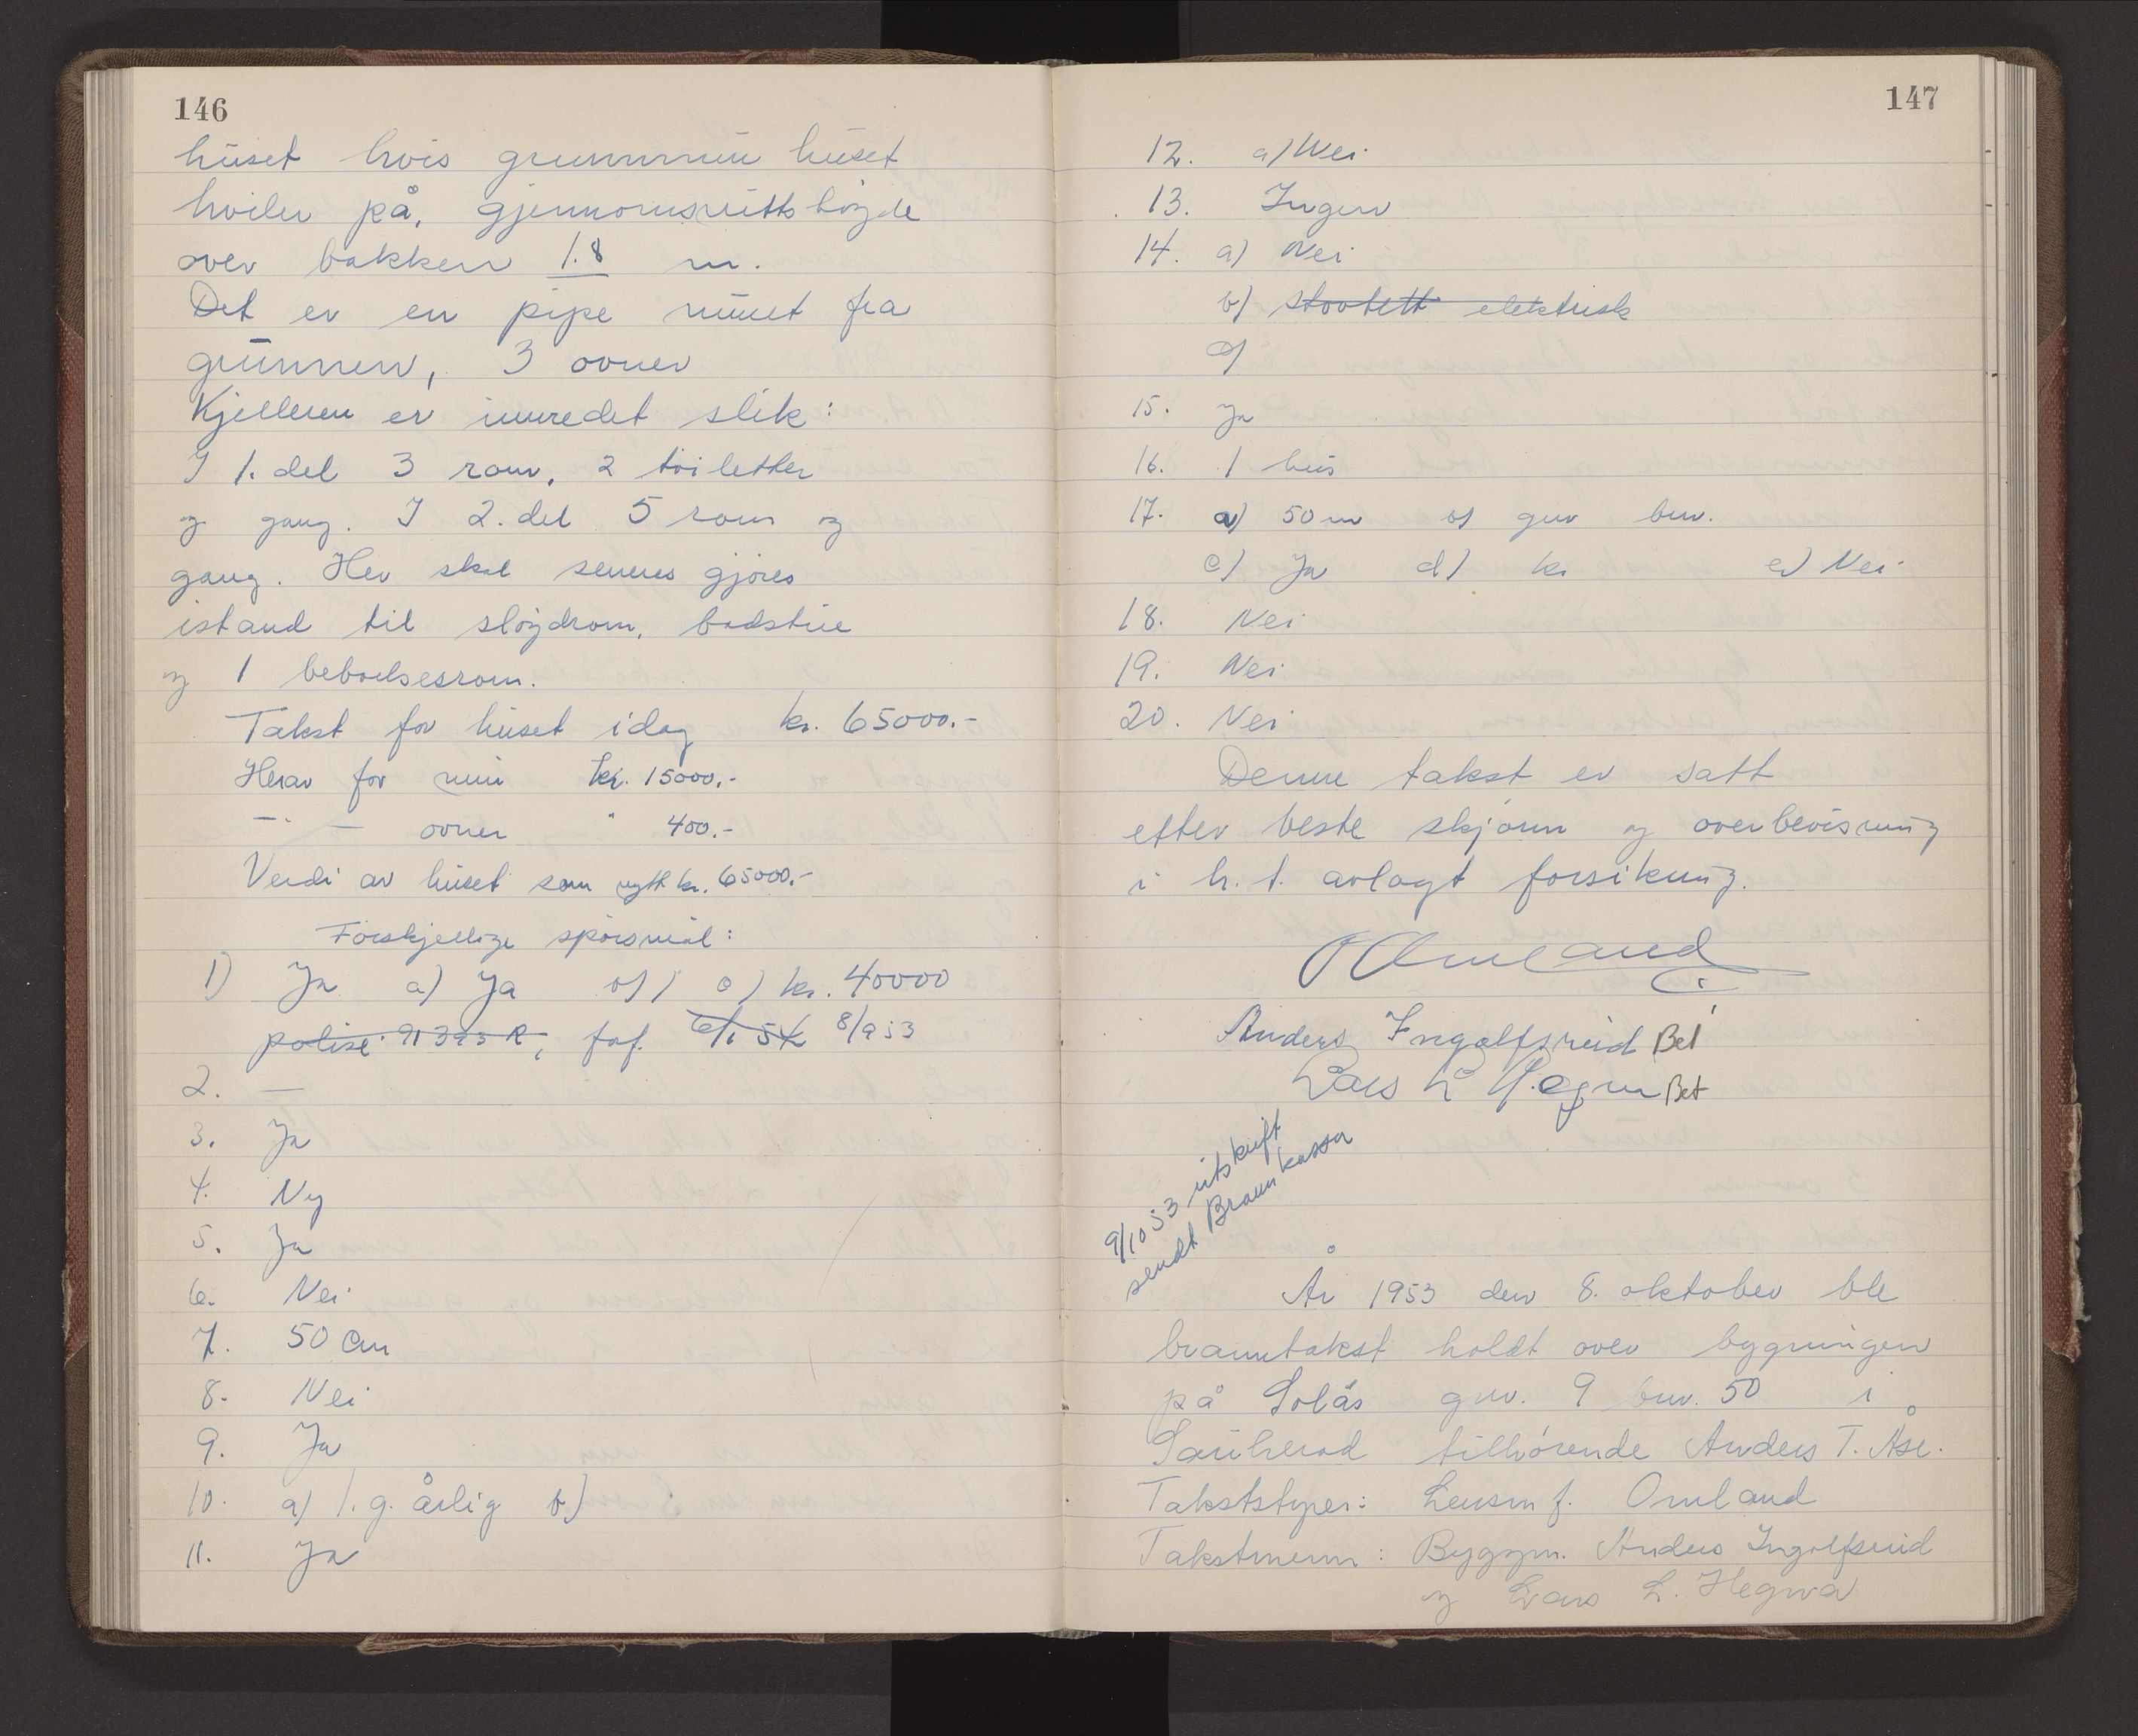 146
huset hvis grunnmur huset
hviler på, gjennomsnittshøyde
over bakken 1.8 m.
Det er en pipe muret fra
grunnen, 3 ovner
Kjelleren er innredet slik:
I 1. del 3 rom, 2 toiletter
og gang. I 2. del 5 rom og
gang. Her skal senere gjøres
istand til sløydrom, badstue
og 1 beboelsesrom.
Takst for huset idag kr. 65000.-
Herav for mur kr. 15000.-
— " — ovner " 400.-
Verdi av huset som nytt kr. 65000.-
Forskjellige spørsmål:
1) Ja a) Ja b) c) kr. 40000
polise 91393 R, faf. 6/1 54 8/9 53
2. —
3. Ja
4. Ny
5. Ja
6. Nei
7. 50 cm
8. Nei
9. Ja
10. a) 1. g. årlig b)
11. Ja
147
12. a) Nei
13. Ingen
14. a) Nei
b) elektrisk
c)
15. Ja
16. 1 hus
17. a) 50 m b) gnr bnr.
c) Ja d) kr e) Nei
18. Nei
19. Nei
20. Nei
Denne takst er satt
etter beste skjønn og overbevisning
i h. t. avlagt forsikring.
Omland
Anders Ingolfsrud Bet
Lars L Hegna Bet
9/10 53 utskrift
sendt Brannkassa
År 1953 den 8. oktober ble
branntakst holdt over bygningen
på Solås gnr. 9 bnr. 50 i
Sauherad tilhørende Anders T. Åse.
Takststyrer: Lensm f. Omland
Takstmenn: Byggm. Anders Ingolfsrud
og Lars L. Hegna